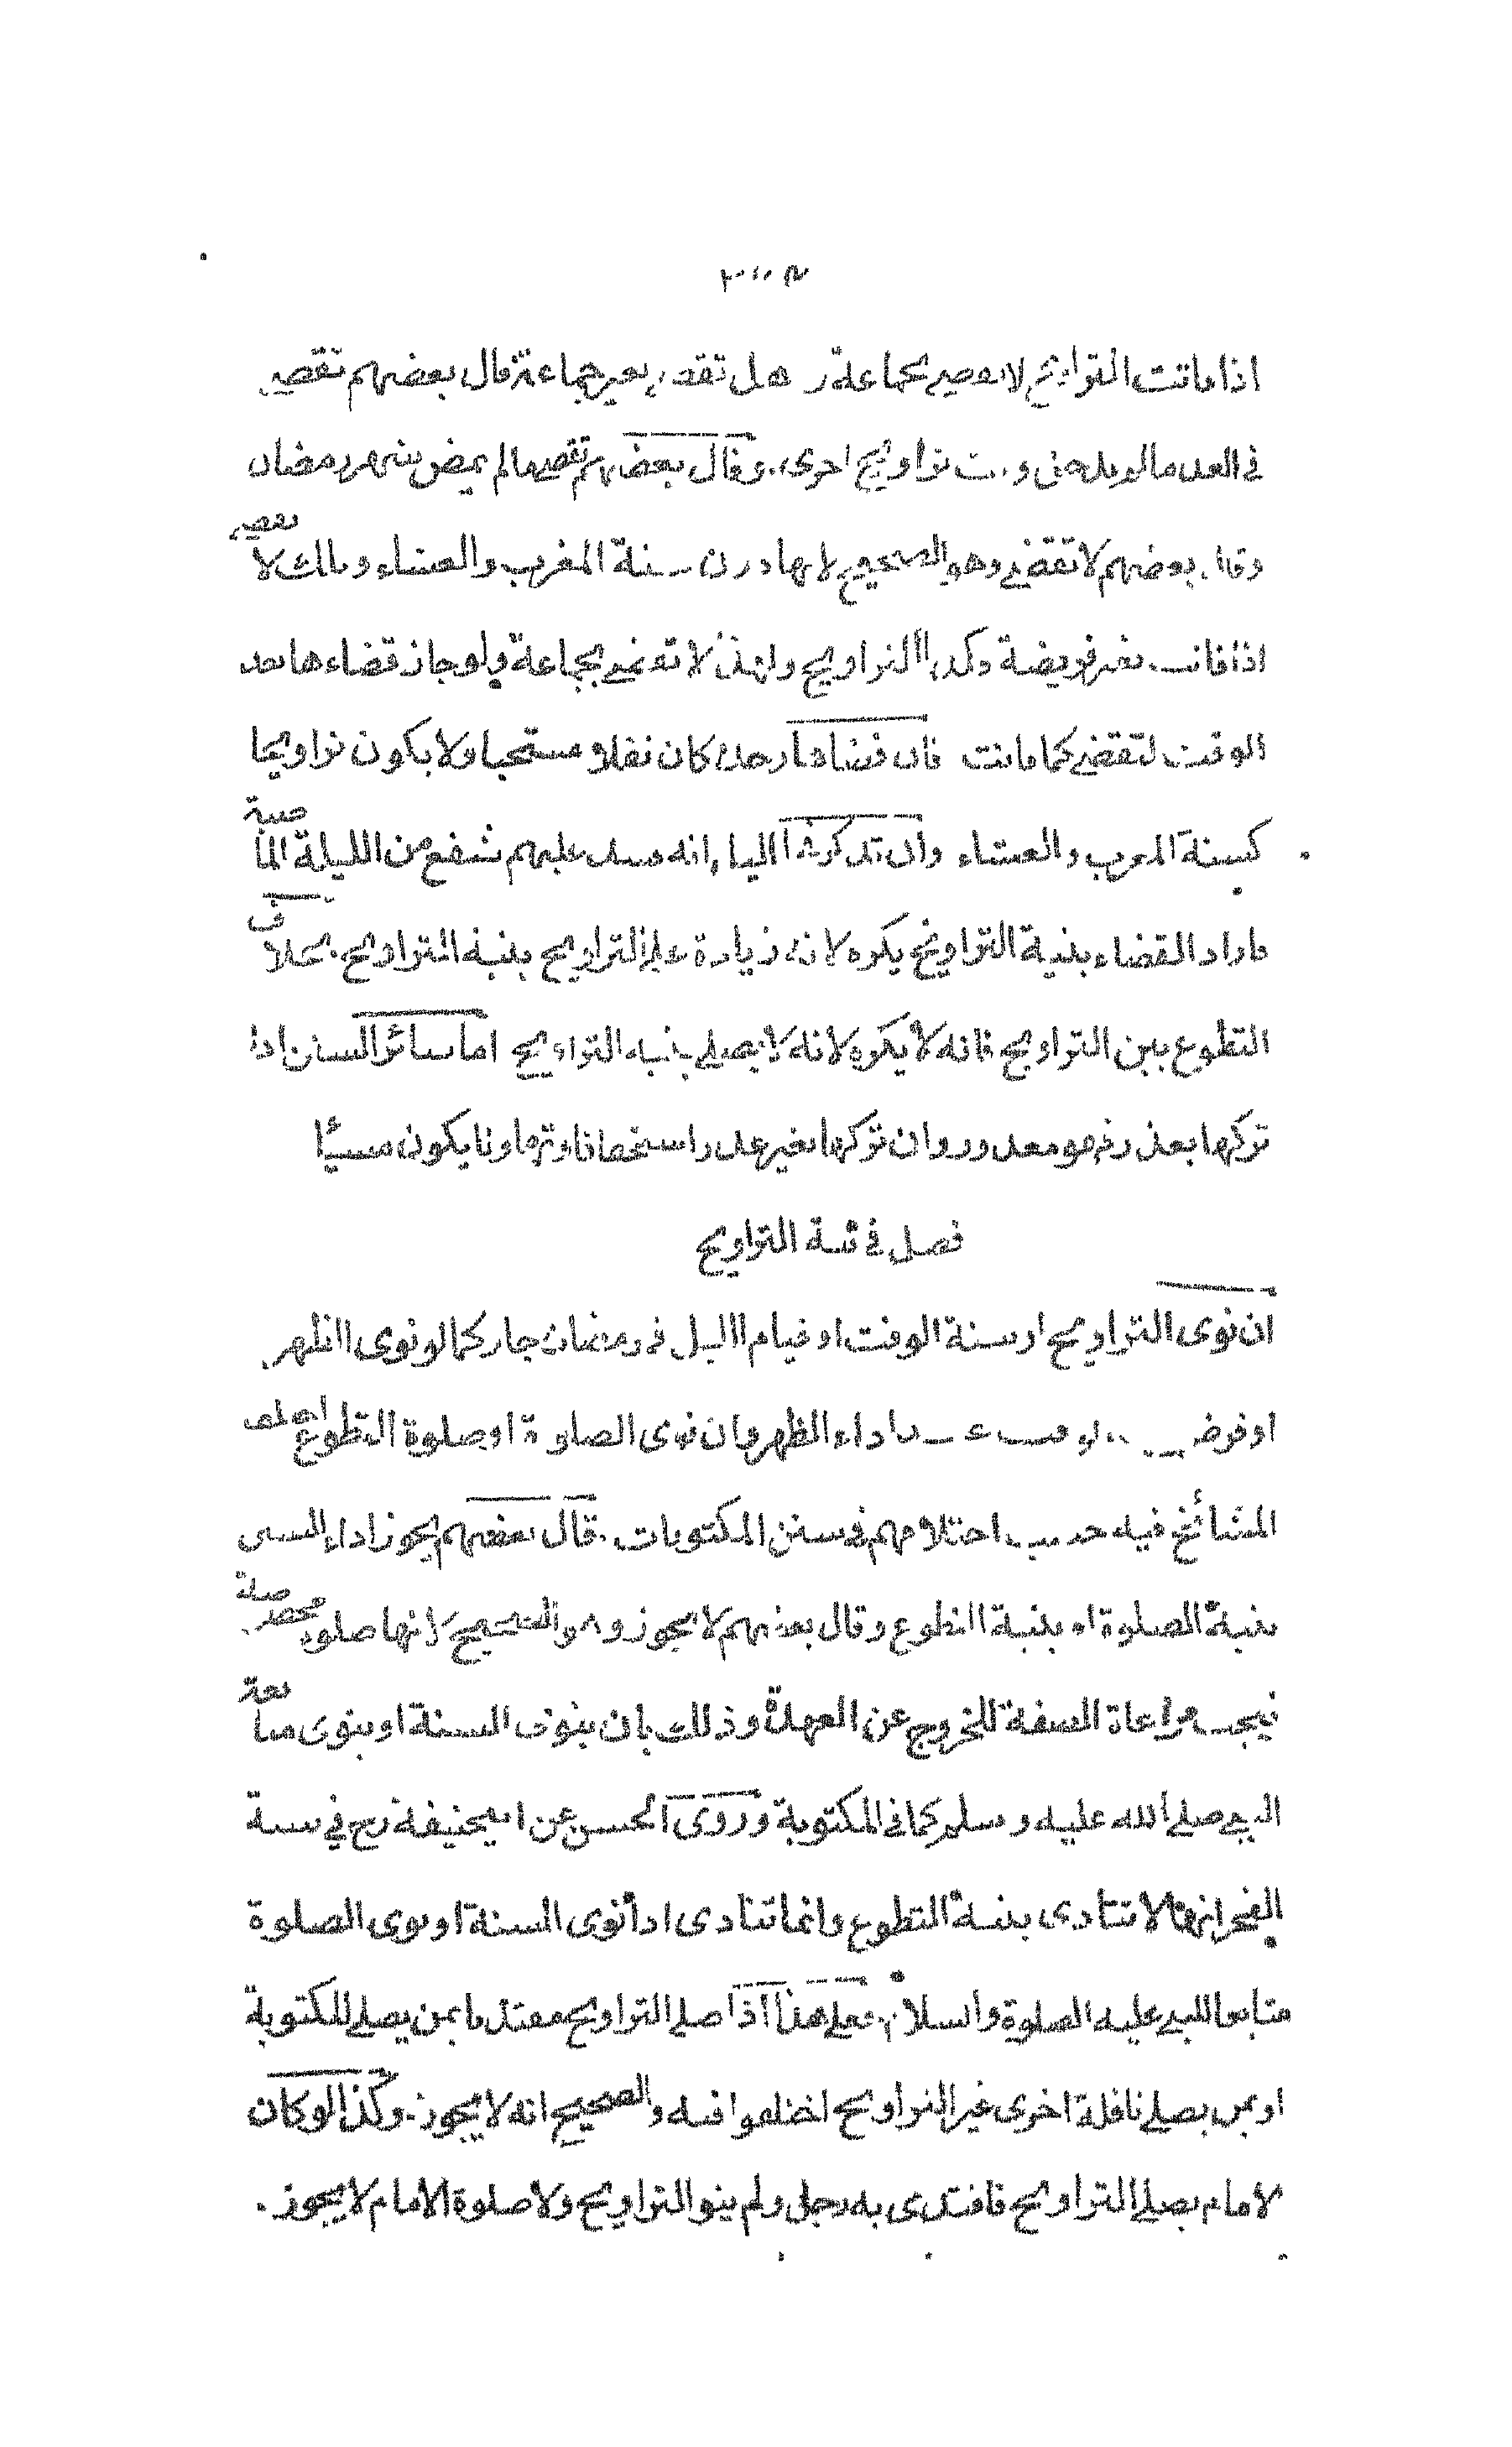 اذا فاتت التراويح لا تقضى بجماعة و هل تقضى بغير جماعة قال بعضهم تقضى
فى الغد ما لم يدخل وقت تراويح اخرى وقال بعضهم تقضى ما لم يمض شهر رمضان
وقال بعضهم لا تقضى وهو الصحيح لانها دون سنة المغرب والعشاء وتلك لا تقضى
اذا فاتت بغير فريضة فكذا التراويح ولهذا لا تقضى بجماعة ولو جاز قضاءها بعد
الوقت لتقضى كما فاتت فان قضاها وحده كان نفلا مستحبا ولا يكون تراويحا
كسنة المغرب والعشاء وان تذكر فى الليل انه فسد عليهم شفع من الليلة الماضية
فاراد القضاء بنية التراويح يكره لانه زيادة على التراويح بنية التراويح بخلاف
التطوع بين التراويح فانه لا يكره لانه لا يصلى بنية التراويح اما سائر السنن اذا
تركها بعذر فهو معذور وان تركها بغير عذر استخفافا وتهاونا يكون مسيئا
فصل فى نية التراويح
ان نوى التراويح او سنة الوقت او قيام الليل فى رمضان جاز كما لو نوى الظهر
او فرض الوقت عند اداء الظهر وان نوى الصلوة او صلوة التطوع اختلف
المشائخ فيه حسب اختلافهم فى سنن المكتوبات قال بعضهم يجوز اداء السنن
بنية الصلوة او بنية التطوع وقال بعضهم لا يجوز وهو الصحيح لانها صلوة مخصوصة
فيجب مراعاة الصفة للخروج عن العهدة وذلك بان ينوى السنة او ينوى متابعة
النبى صلى الله عليه وسلم كما فى المكتوبة وروى الحسن عن ابيحنيفة رح فى سنة
الفجر انها لا تتادى بنية التطوع وانما تتادى اذا نوى السنة او نوى الصلوة
متابعا للنبى عليه الصلوة والسلام فعلى هذا اذا صلى التراويح مقتديا بمن يصلى المكتوبة
او بمن يصلى نافلة اخرى غير التراويح اختلفوا فيه والصحيح انه لا يجوز وكذا لو كان
الامام يصلى التراويح فاقتدى به رجل ولم ينو التراويح ولا صلوة الامام لا يجوز